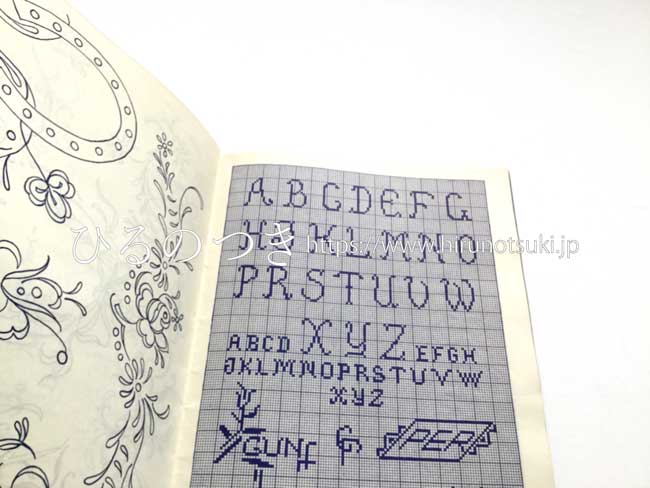 A B C D E F G
H J K L M N O
ひるのつき https://www.hirunotsuki.jp
P R S T U V W
A B C D X Y Z E F G H
J K L M N O P R S T U V W
X Y Z
PER